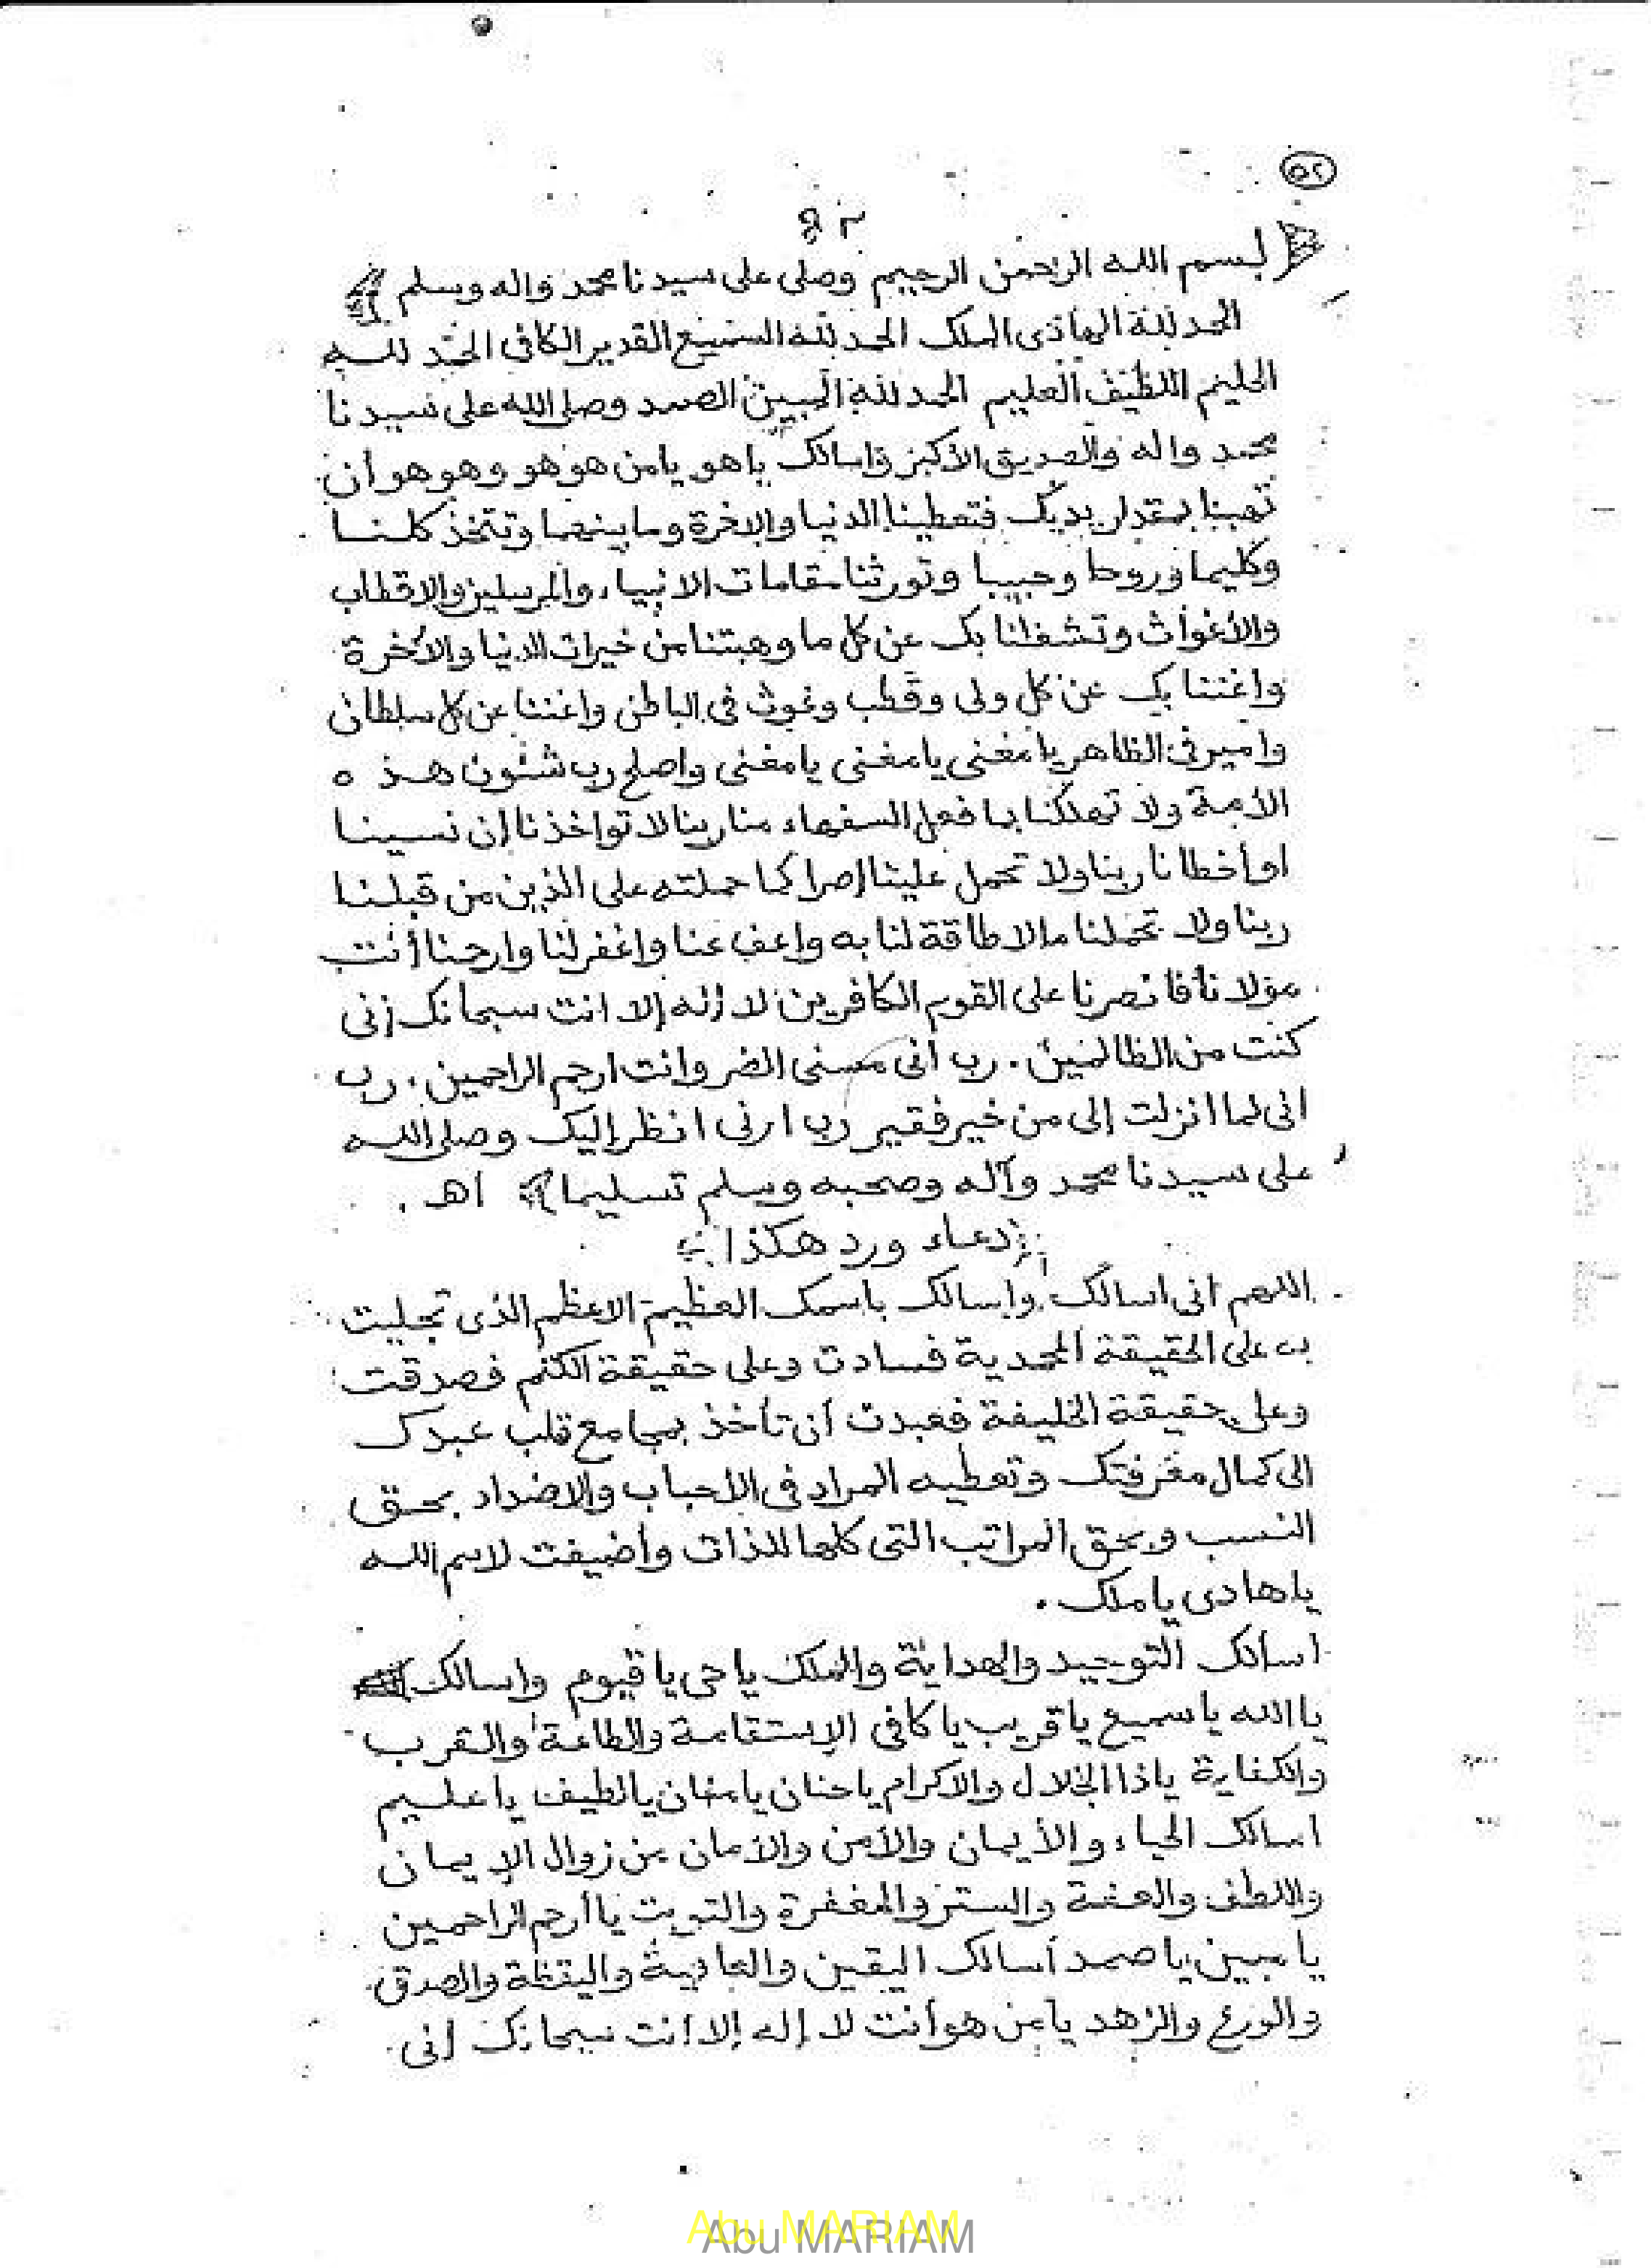 ٥٢
بسم الله الرحمن الرحيم وصلى على سيدنا محمد واله وسلم
الحمد لله الهادى الملك الحمد لله السميع القدير الكافى الحمد لله
الحليم اللطيف العليم الحمد لله المبين الصمد وصلى الله على سيدنا
محمد واله والصديق الأكبر واسالك ياهو يامن هو هو وهو هو أن
تهبنا بمقدار يديك فتعطينا الدنيا والاخرة وما بينهما وتتخذ كلنا
وكليما وروحا وحبيبا وتورثنا مقامات الانبياء والمرسلين والاقطاب
والأغواث وتشغلنا بك عن كل ما وهبتنا من خيرات الدنيا والأخرة
واغننا بك عن كل ولى وقطب وغوث فى الباطن واغننا عن كل سلطان
وامير فى الظاهر يا مغنى يا مغنى يا مغنى واصلح رب شئون هذه
الأمة ولا تهلكنا بما فعل السفهاء منا ربنا لا تواخذنا إن نسينا
او أخطانا ربنا ولا تحمل علينا إصرا كما حملته على الذين من قبلنا
ربنا ولا تحملنا مالا طاقة لنا به واعف عنا واغفر لنا وارحمنا أنت
مولانا فانصرنا على القوم الكافرين لا إله إلا انت سبحانك إنى
كنت من الظالمين . رب انى مسنى الضر وانت ارحم الراحمين . رب
انى لما انزلت إلى من خير فقير رب ارنى انظر إليك وصلى الله
على سيدنا محمد وآله وصحبه وسلم تسليما اهـ .
دعاء ورد هكذا
اللهم انى اسالك واسالك باسمك العظيم الاعظم الذى تجليت
به على الحقيقة المحمدية فسادت وعلى حقيقة الكتم فصدقت
وعلى حقيقة الخليفة فعبدت أن تأخذ بمجامع قلب عبدك
الى كمال معرفتك وتعطيه المراد فى الأحباب والاضداد بحق
النسب وبحق المراتب التى كلها للذات وأضيفت لاسم الله
يا هادى يا ملك .
اسالك التوحيد والهداية والملك يا حى يا قيوم واسالك
يا الله يا سميع يا قريب يا كافى الإستقامة والطاعة والقرب
والكفاية ياذا الجلال والاكرام ياحنان يا منان يا لطيف يا عليم
اسالك الحياء والأيمان والأمن والأمان من زوال الإيمان
واللطف والعفة والستر والمغفرة والتوبت يا أرحم الراحمين
يا مبين يا صمد أسالك اليقين والعافية واليقظة والصدق
والورع والزهد يا من هو أنت لا إله إلا أنت سبحانك إنى
Abu MARIAM